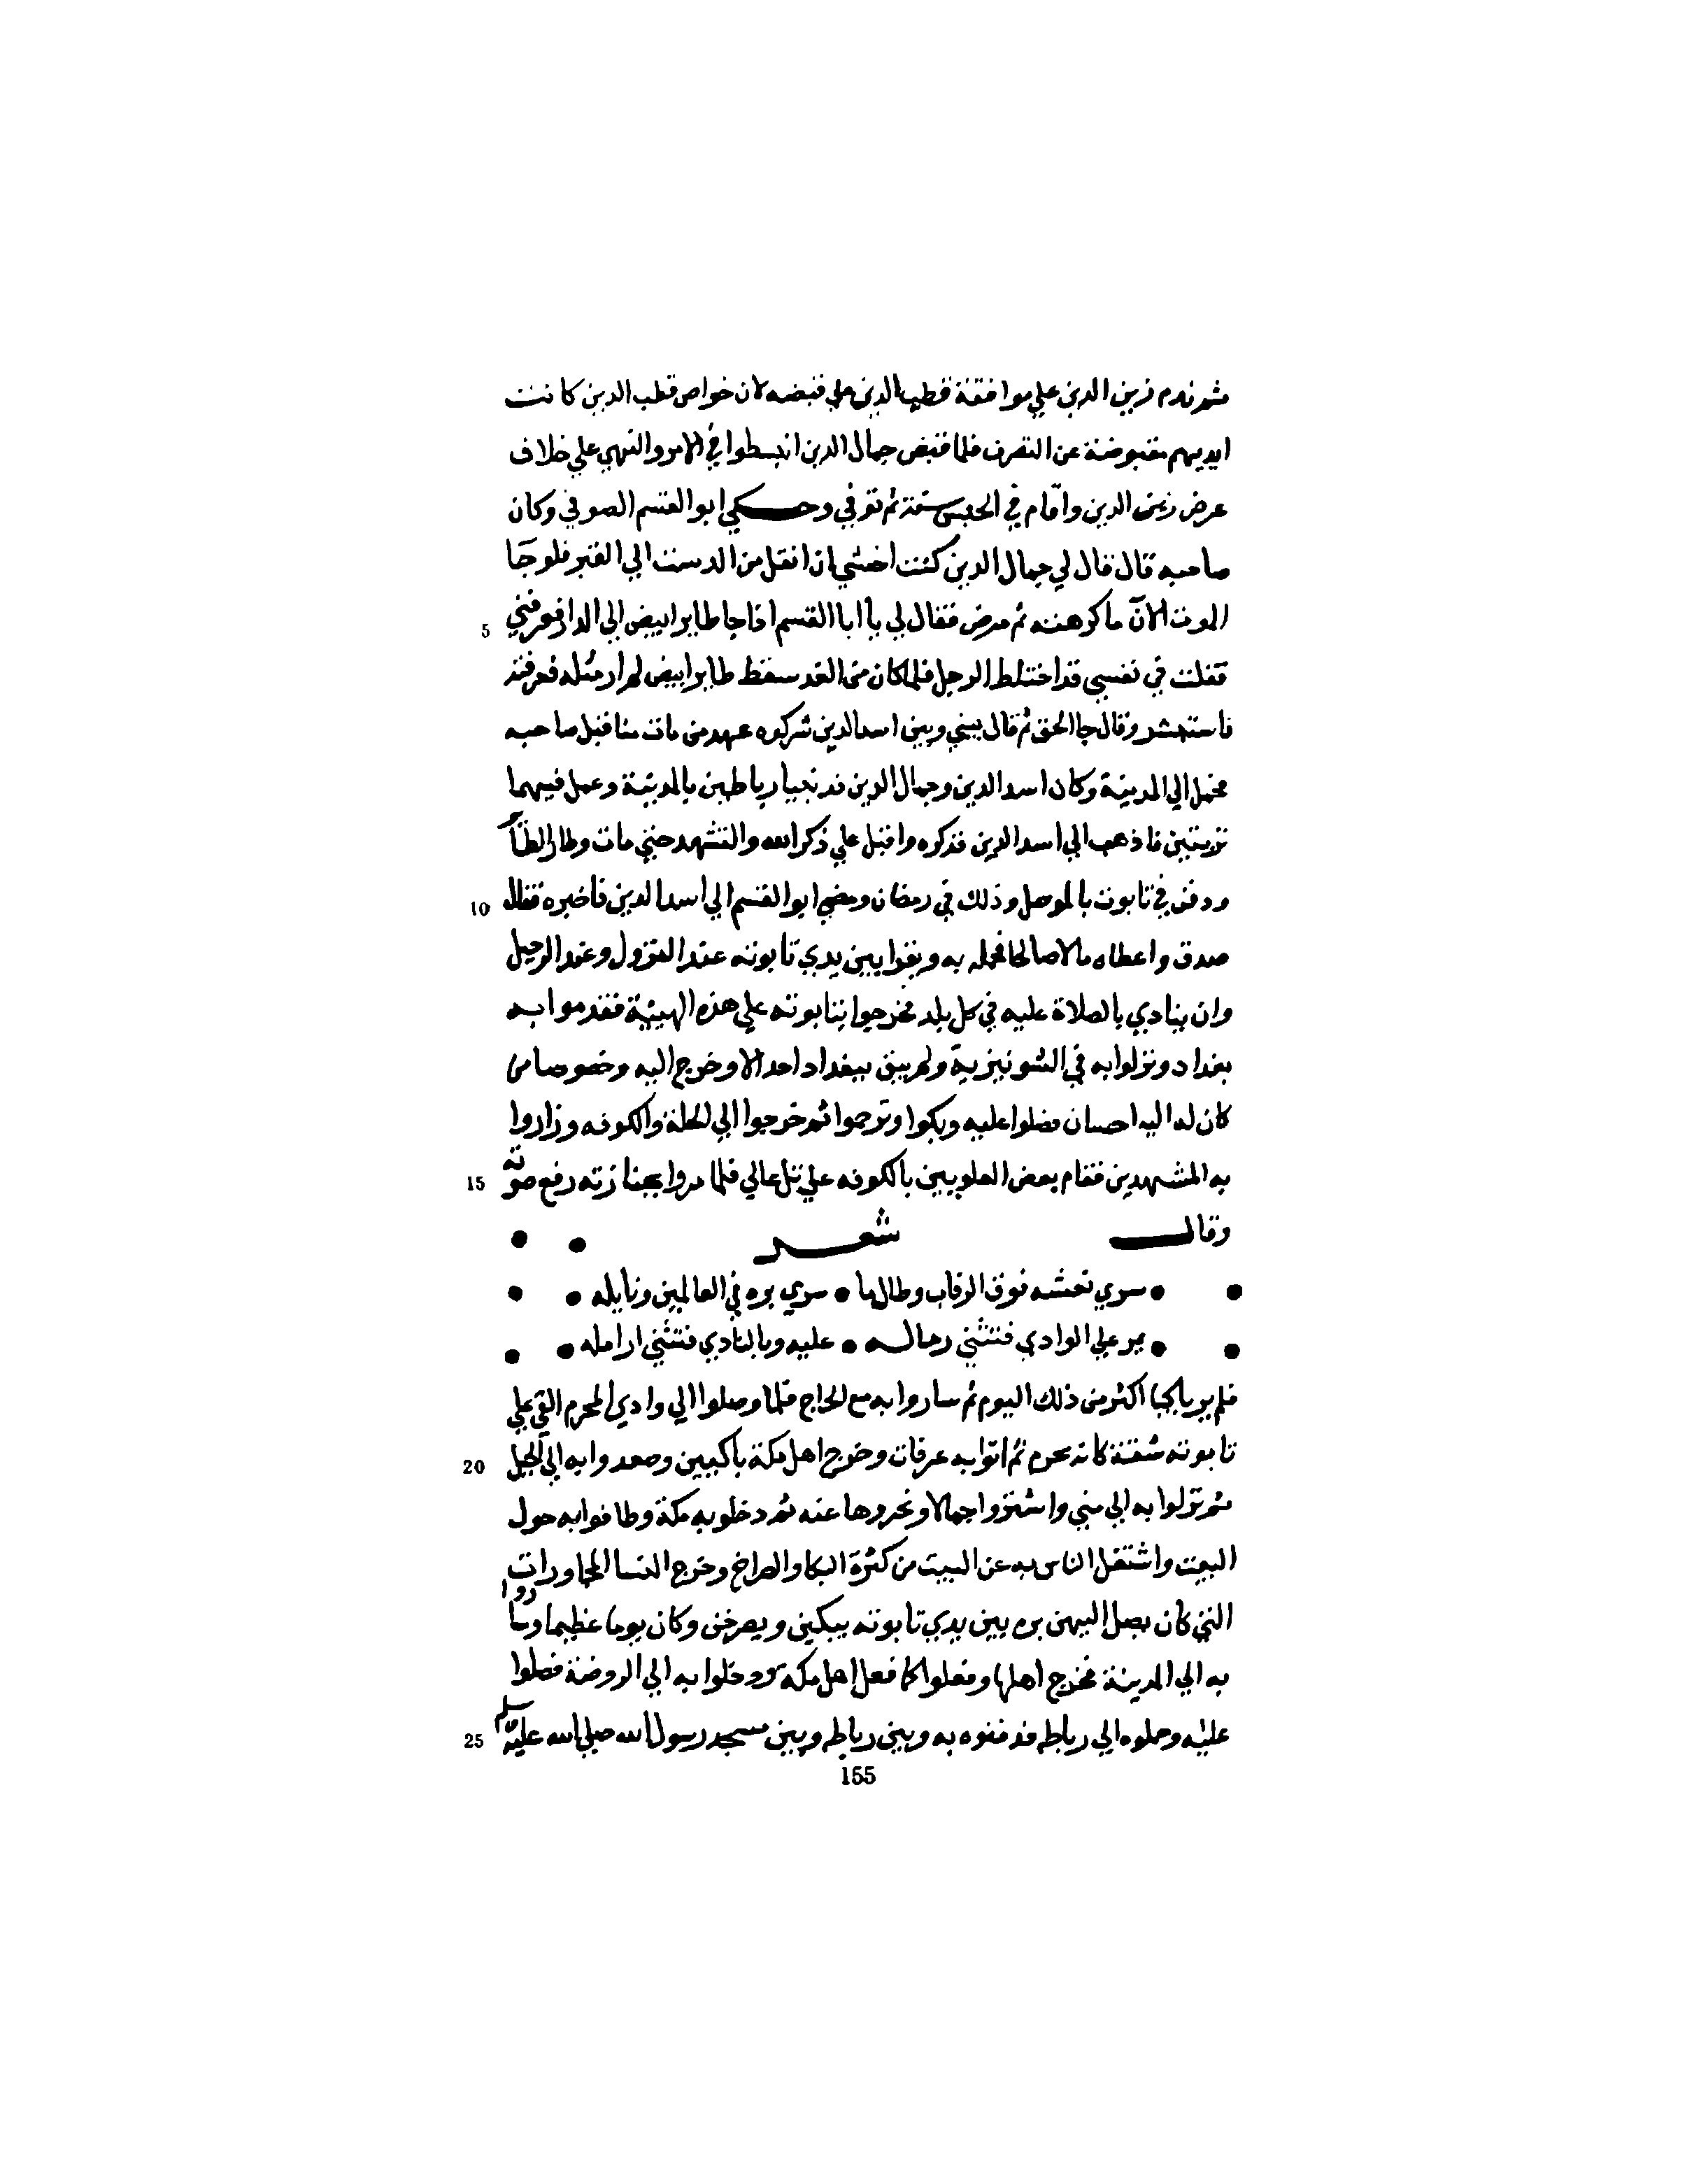 ثم ندم زين الدين علي موافقة قطب الدين علي قبضه لان خواص قطب الدين كانت
ايديهم مقبوضة عن التصرف فلما قبض جمال الدين انبسطوا في الامر والنهي علي خلاف
عرض زين الدين واقام في الحبس سنة ثم توفي وحكي ابو القسم الصوفي وكان
صاحبه قال قال لي جمال الدين كنت اخشي ان انقل من الدست الي القبر فلو جآ
الموت الآن ما كرهته ثم مرض فقال لي يا ابا القسم اذا جا طاير ابيض الي الدار فعرفني
5
فقلت في نفسي قد اختلط الرجل فلما كان من الغد سقط طاير ابيض لم ار مثله فعرفته
فاستبشر وقال جا الحق ثم قال بيني وبين اسد الدين شركوه عهد من مات منا قبل صاحبه
يحمل الي المدينة وكان اسد الدين وجمال الدين قد بنيا رباطين بالمدينة وعمل فيهما
تربتين فاذهب الي اسد الدين فذكره واقبل علي ذكر الله والتشهد حتي مات وطار الطآير
ودفن في تابوت بالموصل وذلك في رمضان ومضي ابو القسم الي اسد الدين فاخبره فقال
10
صدق واعطاه مالا صالحا فحمله به ويقرا بين يدي تابوته عند النزول وعند الرحيل
وان ينادي بالصلاة عليه في كل بلد فخرجوا بتابوته علي هذه الهيئة فقدموا به
بغداد ونزلوا به في الشونيزية ولم يبق ببغداد احد الا وخرج اليه وخصوصا من
كان له اليه احسان فصلوا عليه وبكوا وترحموا ثم خرجوا الي الحلة والكوفه وزاروا
به المشهدين فقام بعض العلويين بالكوفه علي تل عالي فلما مروا بجنازته رفع صوته
15
وقال شعر
سري نعشه فوق الرقاب وطالما • سري بره في العالمين ونايله
يمر علي الوادي فتثني رماله • عليه وبالنادي فتثني ارامله
فلم ير باكيا اكثر من ذلك اليوم ثم ساروا به مع الحاج فلما وصلوا الي وادي المحرم القي علي
تابوته شقة كانه محرم ثم اتوا به عرفات وخرج اهل مكة باكيين وصعدوا به الي الجبل
20
ثم نزلوا به الي مني واشتروا جمالا ونحروها عنه ثم دخلو به مكة وطافوا به حول
البيت واشتغل الناس به عن البيت من كثرة البكا والصراخ وخرج النسا المجاورات
التي كان يصل اليهن بره بين يدي تابوته يبكين ويصرخن وكان يوما عظيما وساروا
به الي المدينة فخرج اهلها وفعلوا كما فعل اهل مكة ودخلوا به الي الروضة فصلوا
عليه وحملوه الي رباطه فدفنوه به وبين رباطه وبين مسجد رسول الله صلي الله عليه وسلم
25
155